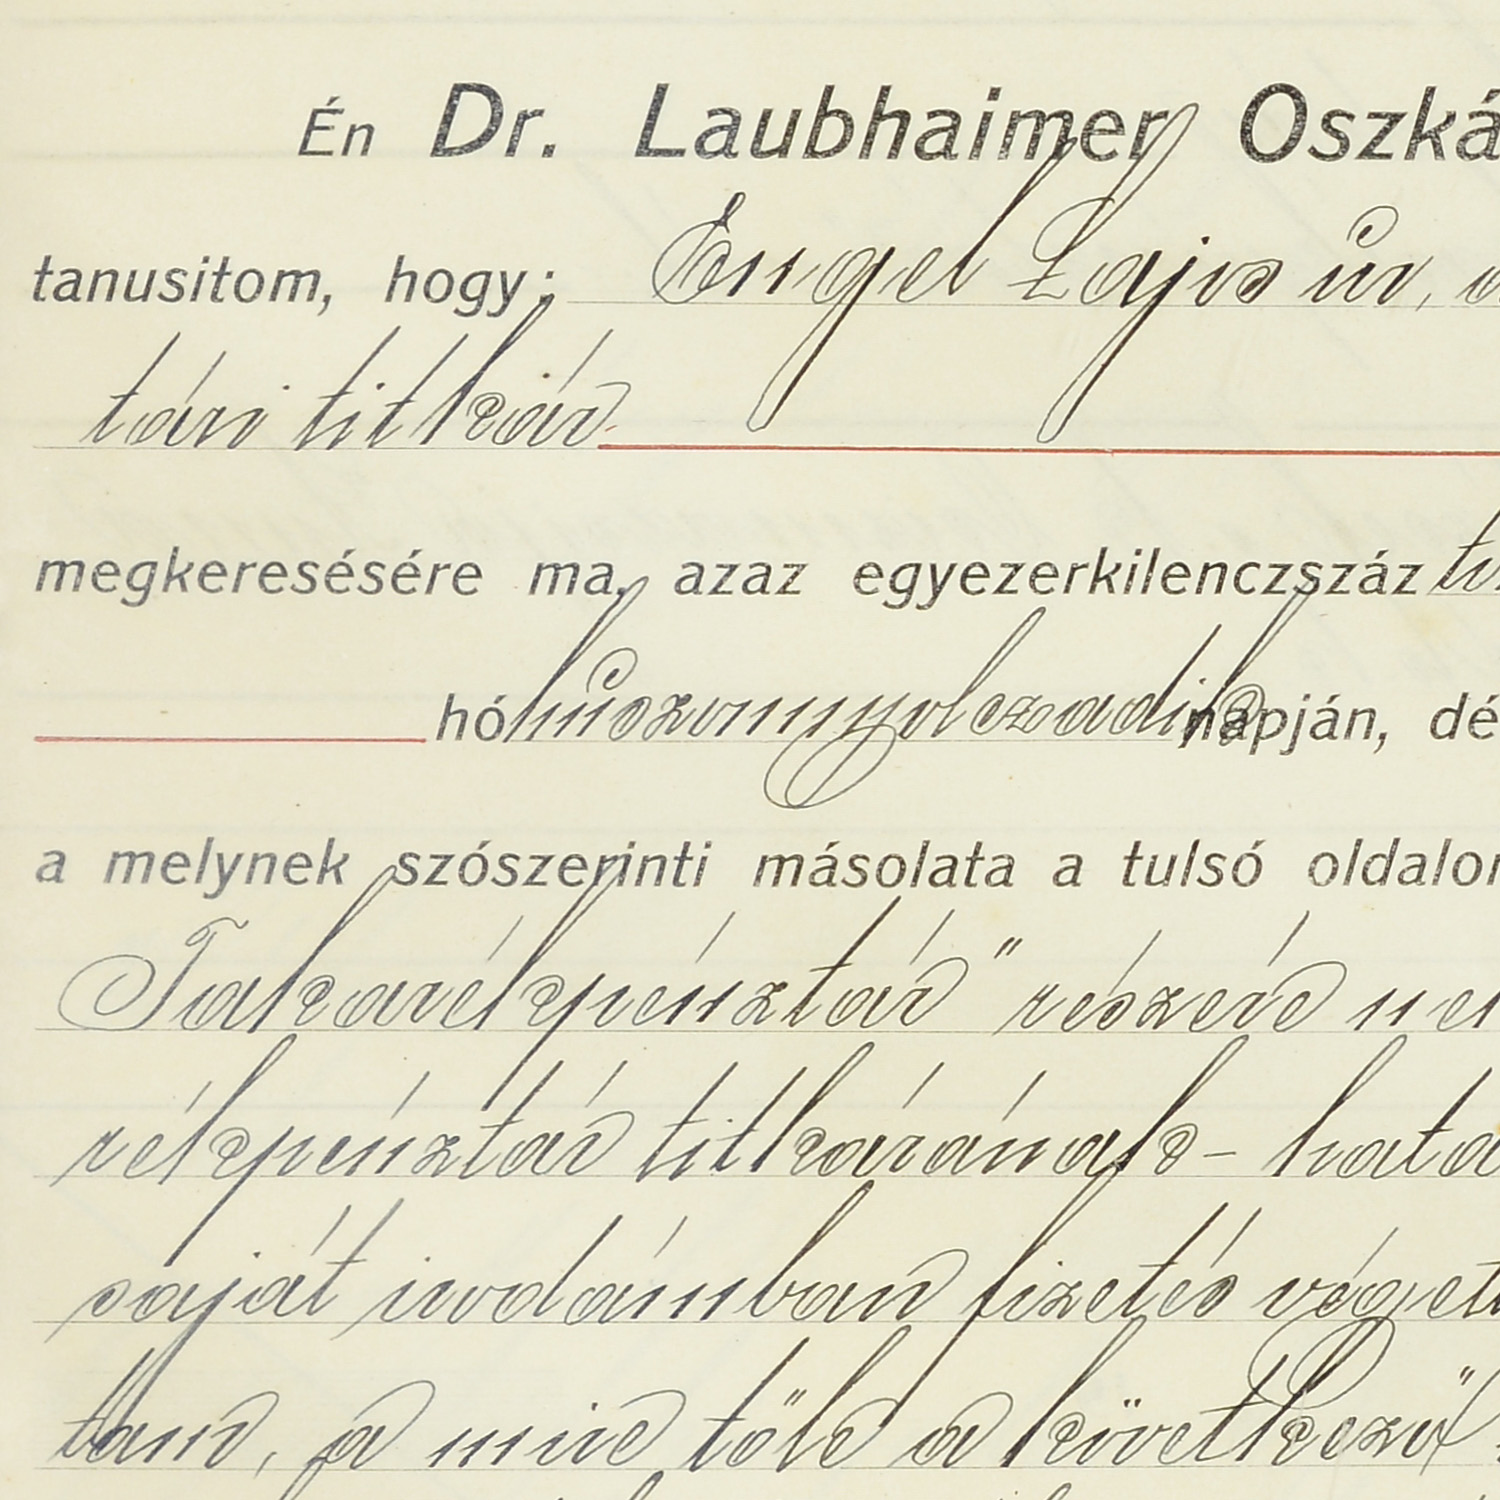 Én Dr. Laubhaimer Oszká
tanusitom, hogy: Engel Lajos úr, a
tári titkár
megkeresésére ma, azaz egyezerkilenczszáz
hó huszonnyolczadik napján, dé
a melynek szószerinti másolata a tulsó oldalon
Takarékpénztár" részére ne
rékpénztár titkárának - hata
saját irodámban fizetés végett
tam, a mire tőle a következő